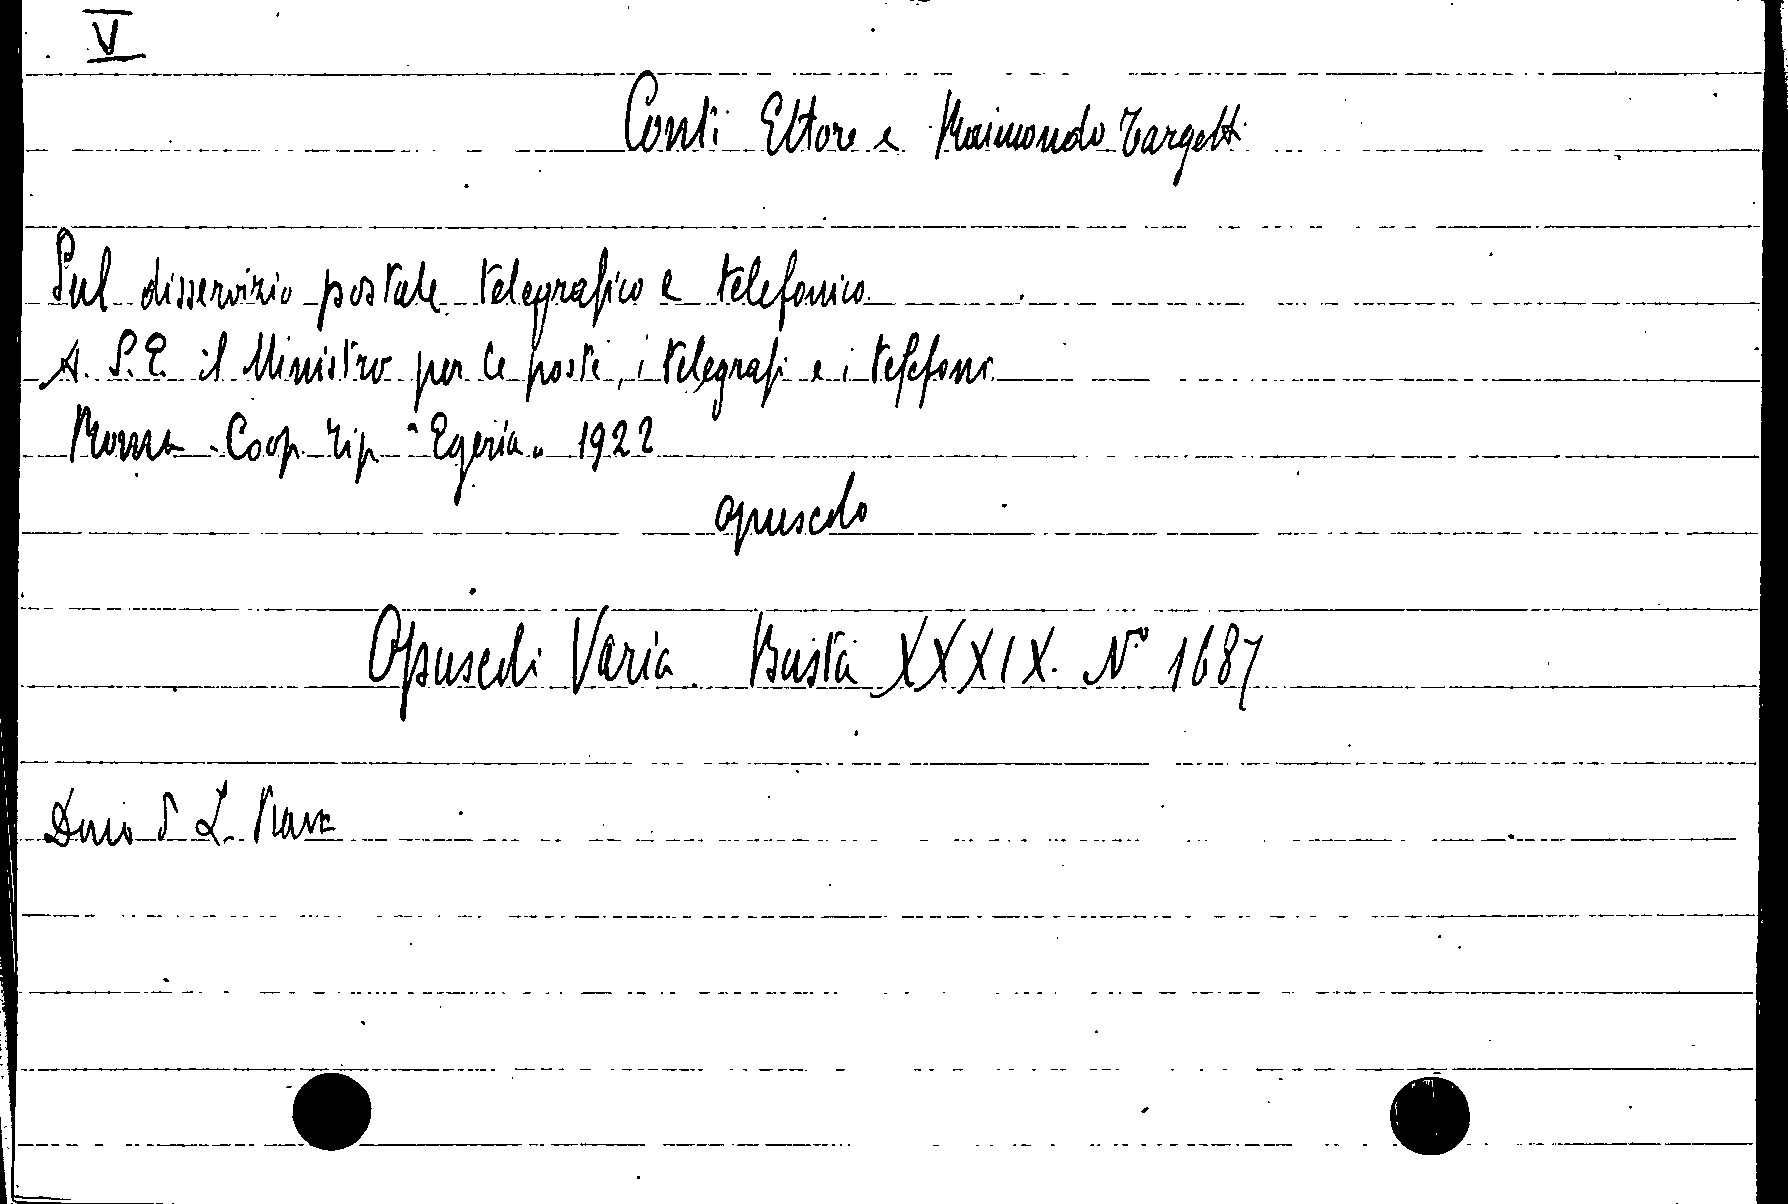 V
Conti Ettore e Raimondo Targetti
Sul disservizio postale telegrafico e telefonico
A. S. E. il Ministro per le poste, i telegrafi e i telefoni
Roma - Coop Tip "Egeria" 1922
opuscolo
Opuscoli Varia. Busta XXXIX. N° 1687
Dono L. Rava